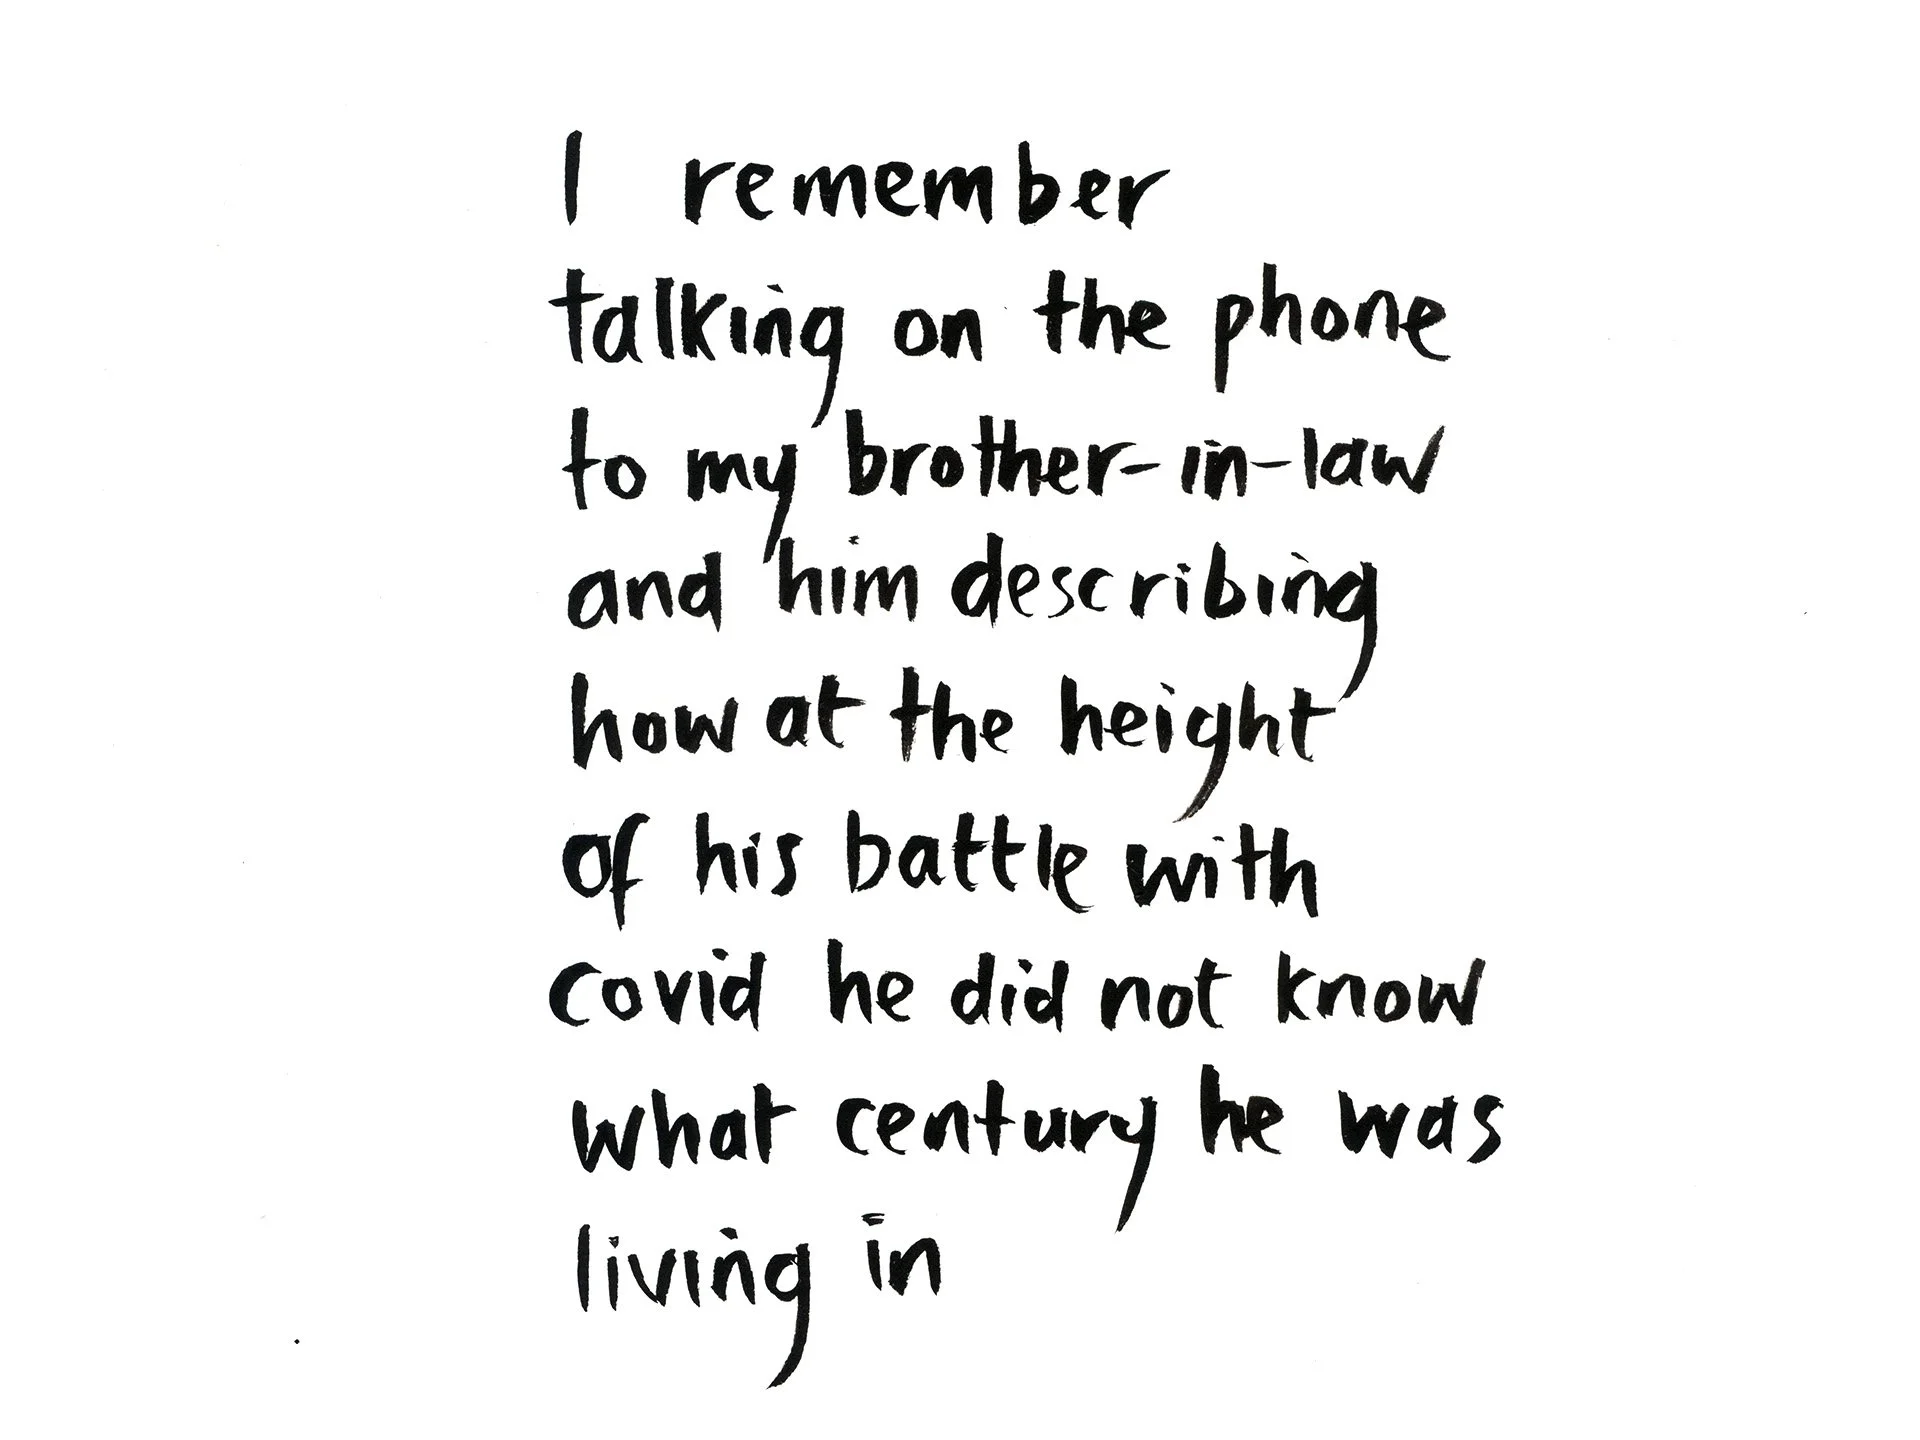 I remember
talking on the phone
to my brother-in-law
and him describing
how at the height
of his battle with
covid he did not know
what century he was
living in